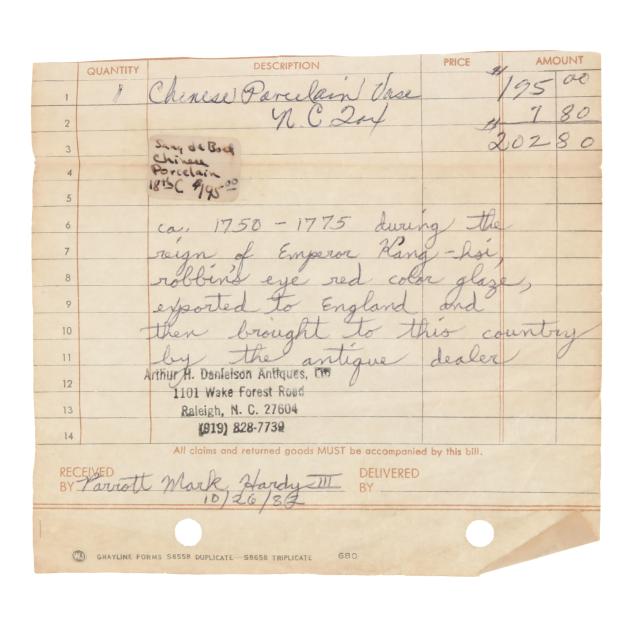 QUANTITY DESCRIPTION PRICE AMOUNT
1 1 Chinese Porcelain Vase $195 00
2 N.C. Tax 7 80
3 $202 80
Sang de Boef
Chinese
Porcelain
18th C $195.00
4
5
6 ca. 1750 - 1775 during the
7 reign of Emperor K'ang-hsi,
8 robbin's eye red color glaze,
9 exported to England and
10 then brought to this country
11 by the antique dealer
Arthur H. Danielson Antiques, Ltd
12 1101 Wake Forest Road
13 Raleigh, N. C. 27604
14 (919) 828-7739
All claims and returned goods MUST be accompanied by this bill.
RECEIVED BY Parrott Mark Hardy III DELIVERED BY
10/26/82
GRAYLINE FORMS S6558 DUPLICATE S8658 TRIPLICATE 680